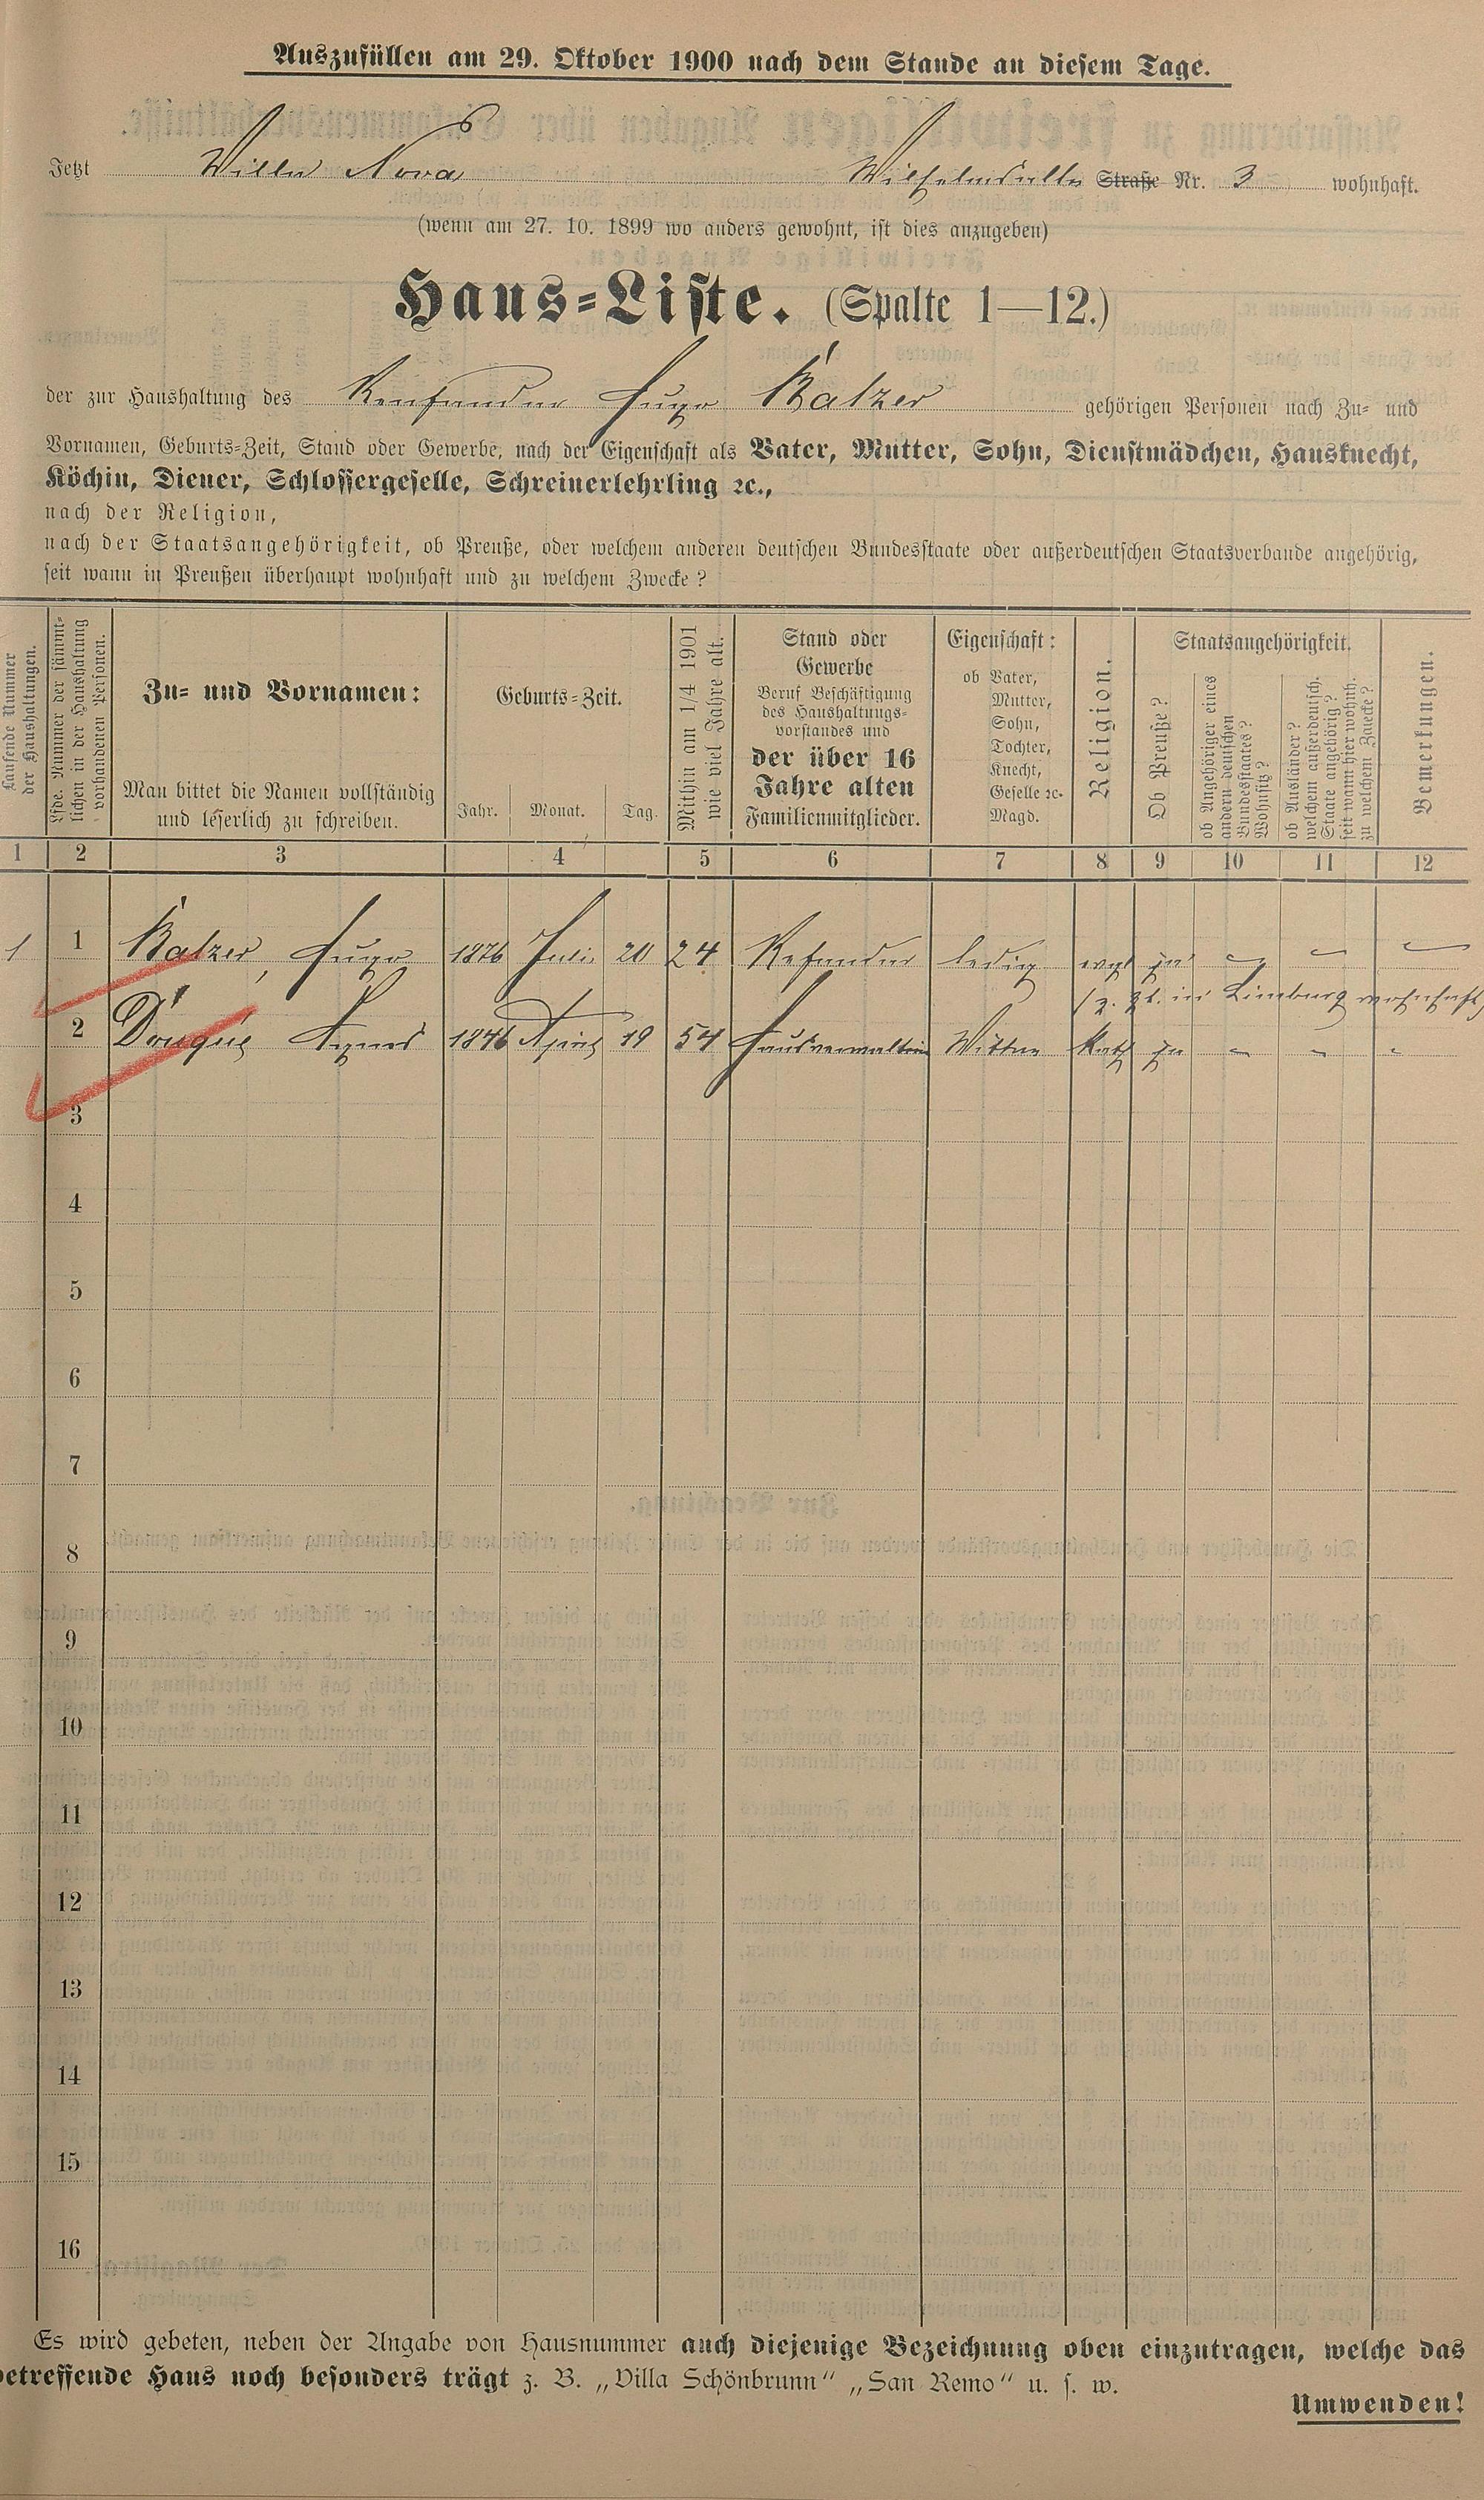 Auszufüllen am 29. Oktober 1900 nach dem Stande an diesem Tage.
Jetzt Villa Nova Wilhelmsallee Straße Nr. 3 wohnhaft.
(wenn am 27. 10. 1899 wo anders gewohnt, ist dies anzugeben)
Haus-Liste. (Spalte 1—12.)
der zur Haushaltung des Hugo Balzer gehörigen Personen nach Zu- und
Vornamen, Geburts-Zeit, Stand oder Gewerbe, nach der Eigenschaft als Vater, Mutter, Sohn, Dienstmädchen, Hausknecht,
Köchin, Diener, Schlossergeselle, Schreinerlehrling ꝛc.,
nach der Religion,
nach der Staatsangehörigkeit, ob Preuße, oder welchem anderen deutschen Bundesstaate oder außerdeutschen Staatsverbande angehörig,
seit wann in Preußen überhaupt wohnhaft und zu welchem Zwecke?
Laufende Nummer
der Haushaltungen.
Lfde. Nummer der sämmt-
lichen in der Haushaltung
vorhandenen Personen.
Zu- und Vornamen:
Man bittet die Namen vollständig
und leserlich zu schreiben.
Geburts-Zeit.
Jahr. Monat. Tag.
Mithin am 1/4 1901
wie viel Jahre alt.
Stand oder
Gewerbe
Beruf Beschäftigung
des Haushaltungs-
vorstandes und
der über 16
Jahre alten
Familienmitglieder.
Eigenschaft:
ob Vater,
Mutter,
Sohn,
Tochter,
Knecht,
Geselle ꝛc.
Magd.
Religion.
Staatsangehörigkeit.
Ob Preuße?
ob Angehöriger eines
andern deutschen
Bundesstaates?
Wohnsitz?
ob Ausländer?
welchem außerdeutsch.
Staate angehörig?
seit wann hier wohnh.
zu welchem Zwecke?
Bemerkungen.
1 2 3 4 5 6 7 8 9 10 11 12
1 1 Balzer, Hugo 1876 Juli 20 24 Referendar ledig evgl ja – – –
(z. Zt. in Limburg wohnhaft)
2 Agnes 1846 April 19 54 Hausverwalterin Witwe Kath ja – – –
3
4
5
6
7
8
9
10
11
12
13
14
15
16
Es wird gebeten, neben der Angabe von Hausnummer auch diejenige Bezeichnung oben einzutragen, welche das
betreffende Haus noch besonders trägt z. B. „Villa Schönbrunn“ „San Remo“ u. s. w.
Umwenden!